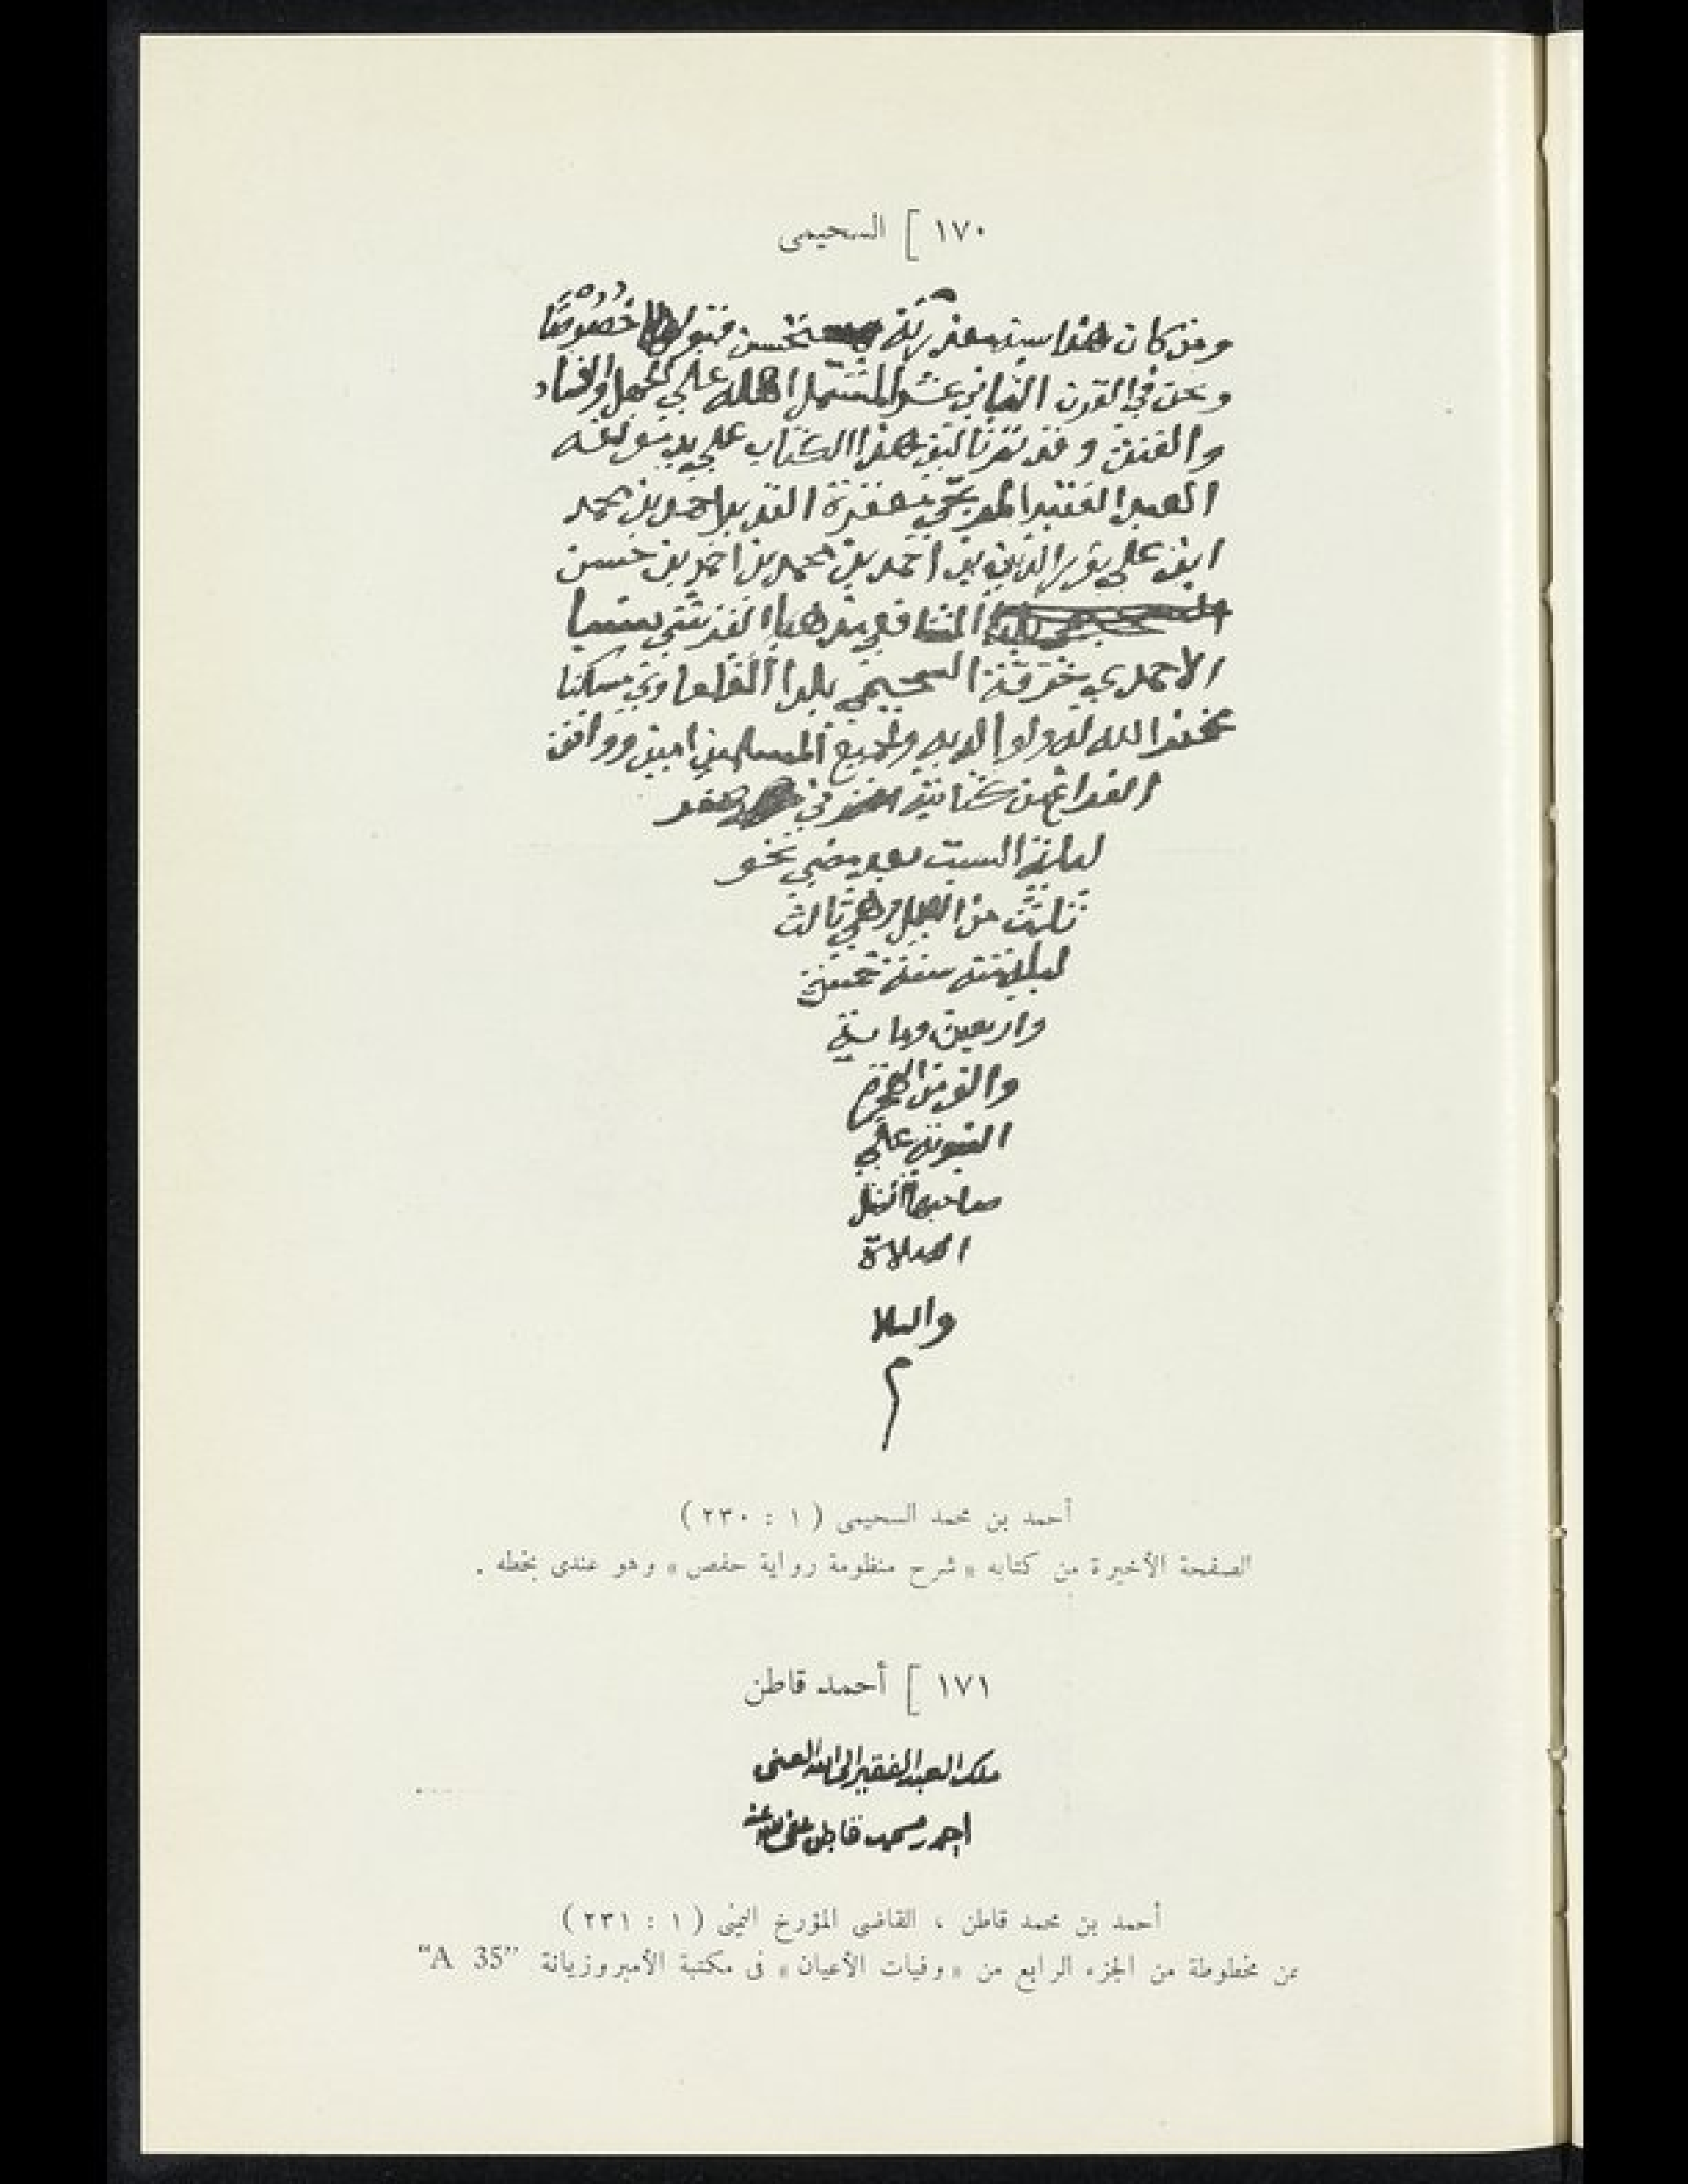 ١٧٠ [ السحيمى
ومن كان هذا سنه معذرته تحسن قبولها خصوصًا
ونحن في القرن الثاني عشر المشتمل اهله علي الجهل والفساد
والفتن وقد تم تاليف هذا الكتاب علي يد مولفه
العبد الفقير المرتجي مغفرة القدير احمد بن محمد
ابن علي نور الدين بن احمد بن محمد بن احمد بن حسن
الشافعي مذهبا القرشي نسبا
الاحمدي خرقة السحيمي بلدا القلعاوي مسكنا
غفر الله له ولوالديه ولجميع المسلمين امين ووافق
الفراغ من كتابته في صفر
ليلة السبت بعد مضي نحو
ثلث من الليل وهي ثالث
ليلة منه سنة
واربعين وماية
والف من الهجرة
النبوية علي
صاحبها افضل
الصلاة
والسلا
م
أحمد بن محمد السحيمى ( ١ : ٢٣٠ )
الصفحة الأخيرة من كتابه « شرح منظومة رواية حفص » وهو عندى بخطه .
١٧١ [ أحمد قاطن
ملك العبد الفقير الى الله الغنى
احمد بن محمد قاطن عفى الله عنه
أحمد بن محمد قاطن ، القاضى المؤرخ اليمنى ( ١ : ٢٣١ )
عن مخطوطة من الجزء الرابع من « وفيات الأعيان » فى مكتبة الأمبروزيانة “A 35”